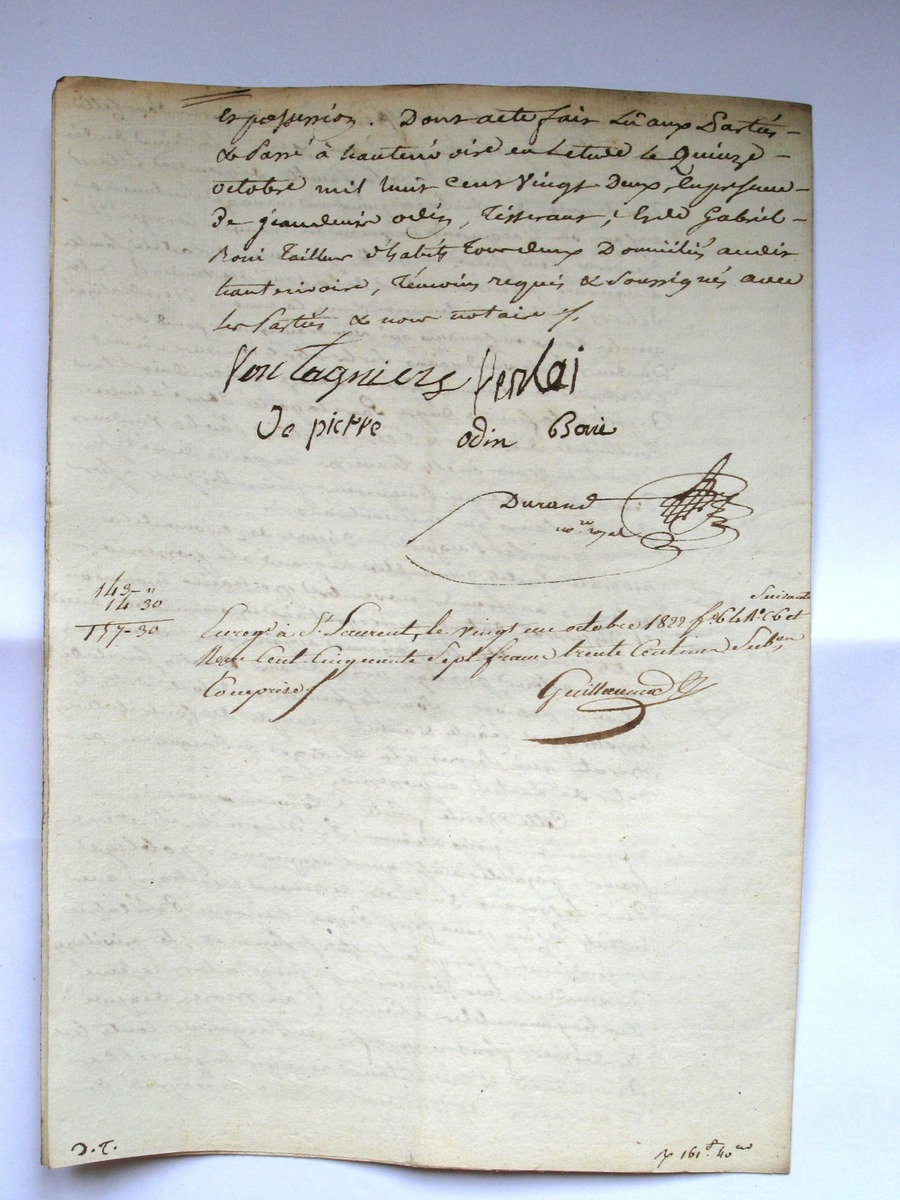 et possession. Dont acte fait Lû aux Parties
& Passé à hauterivoire en Letude le Quinze
octobre mil huit cent Vingt Deux, En presence
De jeandenis odin, Tisserant, & de Gabriel
Boni Tailleur d'habits Tous deux Domiciliés audit
hauterivoire, Témoins requis & Soussignés avec
les Parties & nous notaire
Pontagniers
De pierre odin Boni
Durand
no.re royal
143-"
14 30
157-30
Enreg.é à St Laurent, le vingt un octobre 1822 f.o 64 R.o C.6 et Suivante
Reçu Cent Cinquante Sept francs trente Centimes Sub.on
Comprise
Guillaume
D.T.
161.f 40.ces